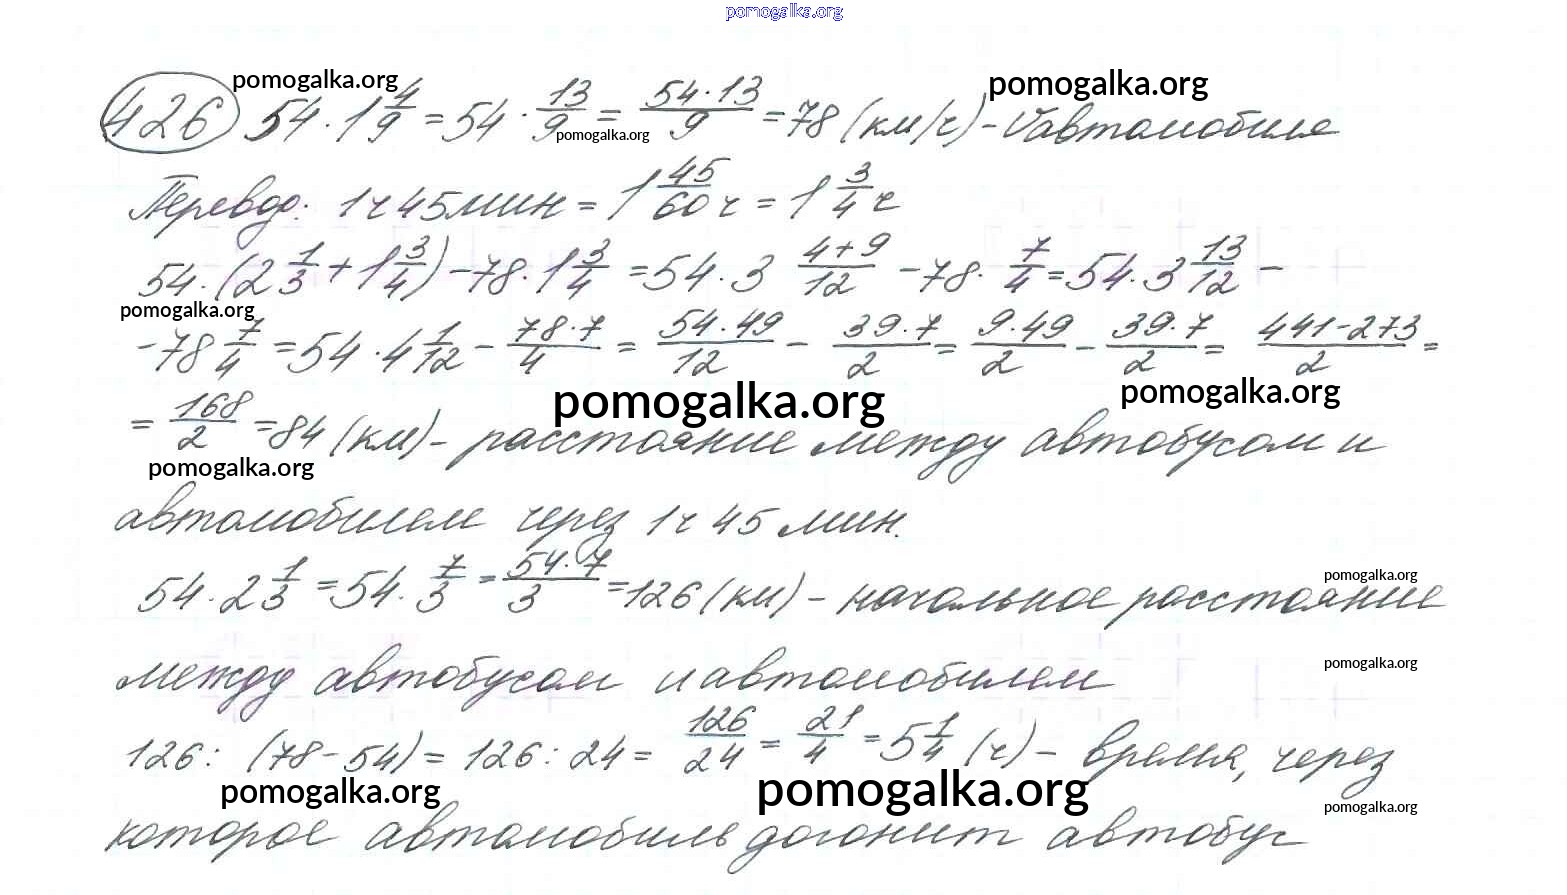 pomogalka.org
pomogalka.org pomogalka.org
426 54 · 1 4/9 = 54 · 13/9 = 54·13/9 = 78 (км/ч) - Vавтомобиля
pomogalka.org
Перевод: 1ч 45мин = 1 45/60 ч = 1 3/4 ч
54 · (2 1/3 + 1 3/4) - 78 · 1 3/4 = 54 · 3 4+9/12 - 78 · 7/4 = 54 · 3 13/12 -
pomogalka.org
- 78 7/4 = 54 · 4 1/12 - 78·7/4 = 54·49/12 - 39·7/2 = 9·49/2 - 39·7/2 = 441-273/2 =
pomogalka.org pomogalka.org
= 168/2 = 84 (км) - расстояние между автобусом и
pomogalka.org
автомобилем через 1ч 45 мин.
54 · 2 1/3 = 54 · 7/3 = 54·7/3 = 126 (км) - начальное расстояние
pomogalka.org
между автобусом и автомобилем
pomogalka.org
126 : (78 - 54) = 126 : 24 = 126/24 = 21/4 = 5 1/4 (ч) - время, через
pomogalka.org pomogalka.org pomogalka.org
которое автомобиль догонит автобус